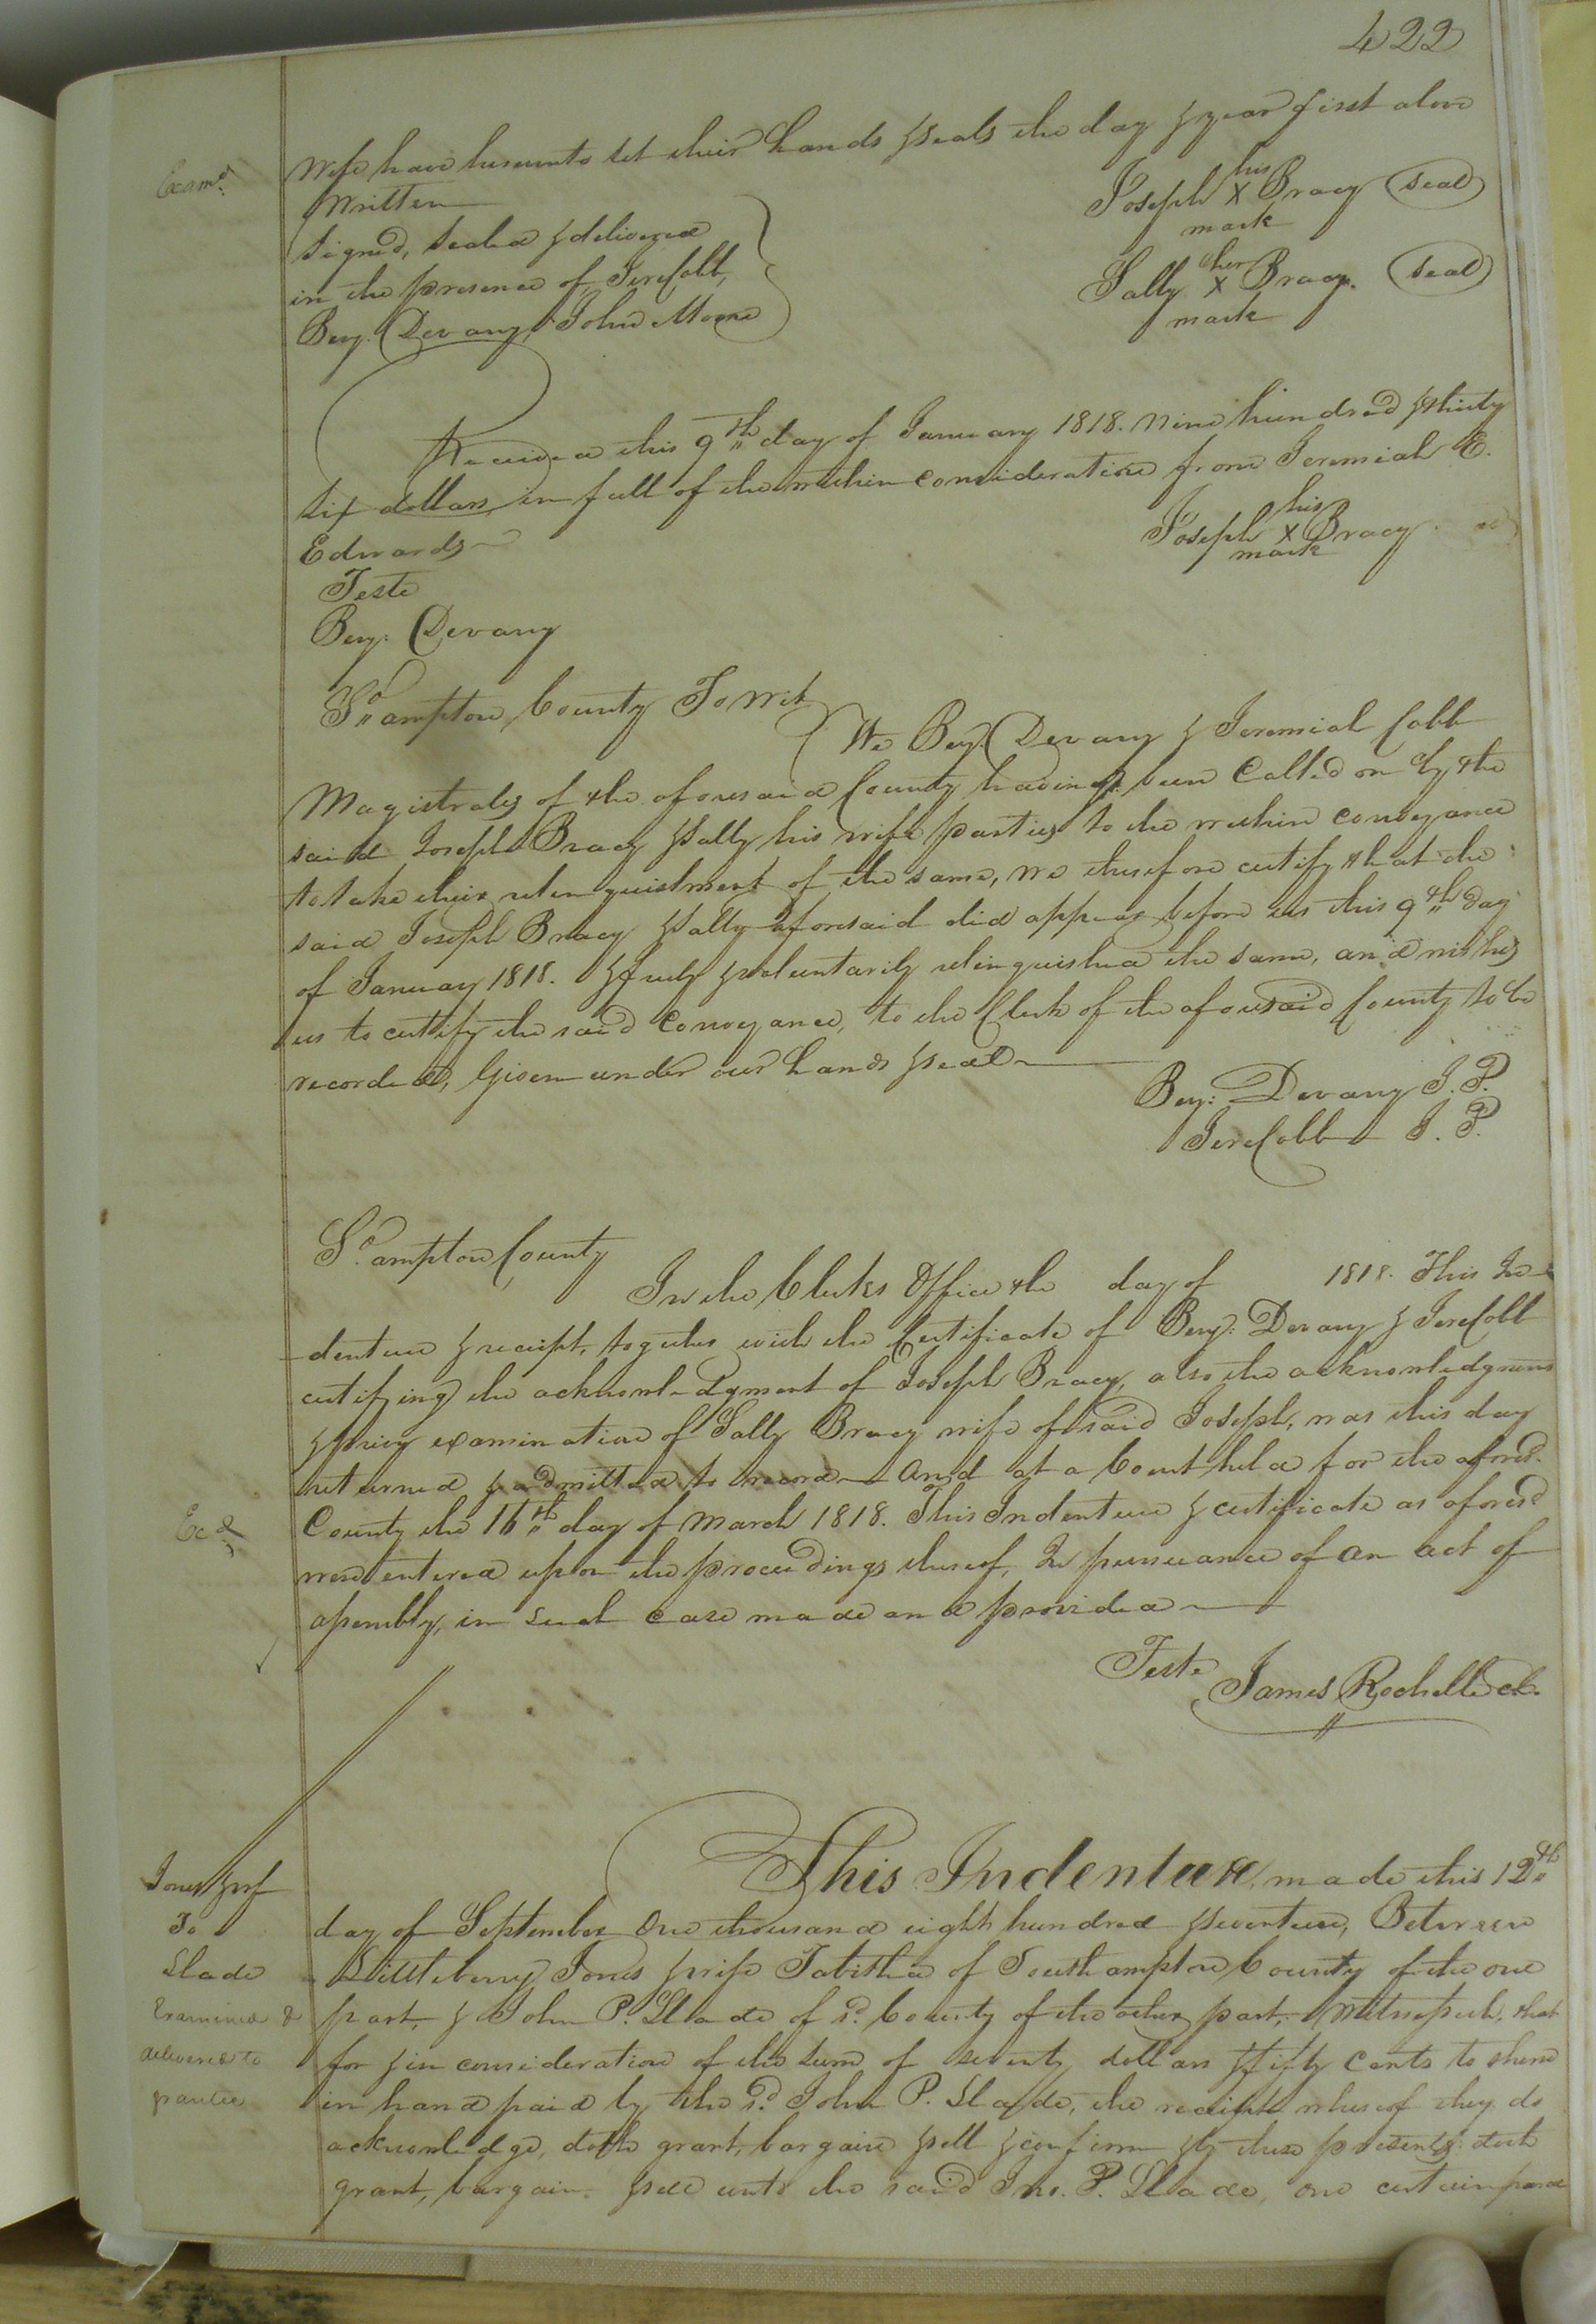 422
Exam.d
Wife have hereunto set their hands & seals the day & year first above
Written
Signed, Sealed & delivered
in the presence of, Jere Cobb,
Benj. Devany, John Moore
his
Joseph X Bracy (seal)
mark
her
Sally X Bracy. (seal)
mark
Received this 9th day of January 1818. Nine hundred & thirty
six dollars in full of the within consideration from Jeremiah E.
Edwards
his
Joseph X Bracy
mark
Teste
Benj: Devany
So.ampton County To Wit
We Benj. Devany & Jeremiah Cobb
Magistrates of the aforesaid County having been Called on by the
said Joseph Bracy & Sally his wife parties to the within conveyance
to take their relinquishment of the same, we therefore certify that the
said Joseph Bracy & Sally aforesaid did appear before us this 9th day
of January 1818. & freely & voluntarily relinquished the same, and wishes
us to certify the said Conveyance, to the Clerk of the aforesaid County to be
recorded, Given under our hands & seal
Benj: Devany J. P.
Jere Cobb J. P.
So.ampton County
In the Clerks Office the day of 1818. This In-
-denture & receipt, together with the Certificate of Benj: Devany & Jere Cobb
certifying the acknowledgment of Joseph Bracy, also the acknowledgment
& privy examination of Sally Bracy wife of said Joseph, was this day
returned & admitted to record And at a Court held for the afores.d
County the 16th day of March 1818. This Indenture & certificate as afores.d
Ec.d
were entered upon the proceedings thereof, In pursuance of an act of
assembly, in such case made and provided
Teste
James Rochelle cl.
Jones & wf
To
Slade
Examined &
delivered to
This Indenture, made this 12th
day of September One thousand eight hundred & seventeen, Between
Littleberry Jones & wife Tabitha of Southampton County of the one
part, & John P. Slade of sd. County of the other part, Witnesseth, that
for & in consideration of the sum of seventy dollars & fifty cents to them
in hand paid by the sd. John P. Slade, the receipt whereof they do
acknowledge, doth grant, bargain & sell & confirm & by these presents doth
grant, bargain & sell unto the said Jno. P. Slade, one certain parcel